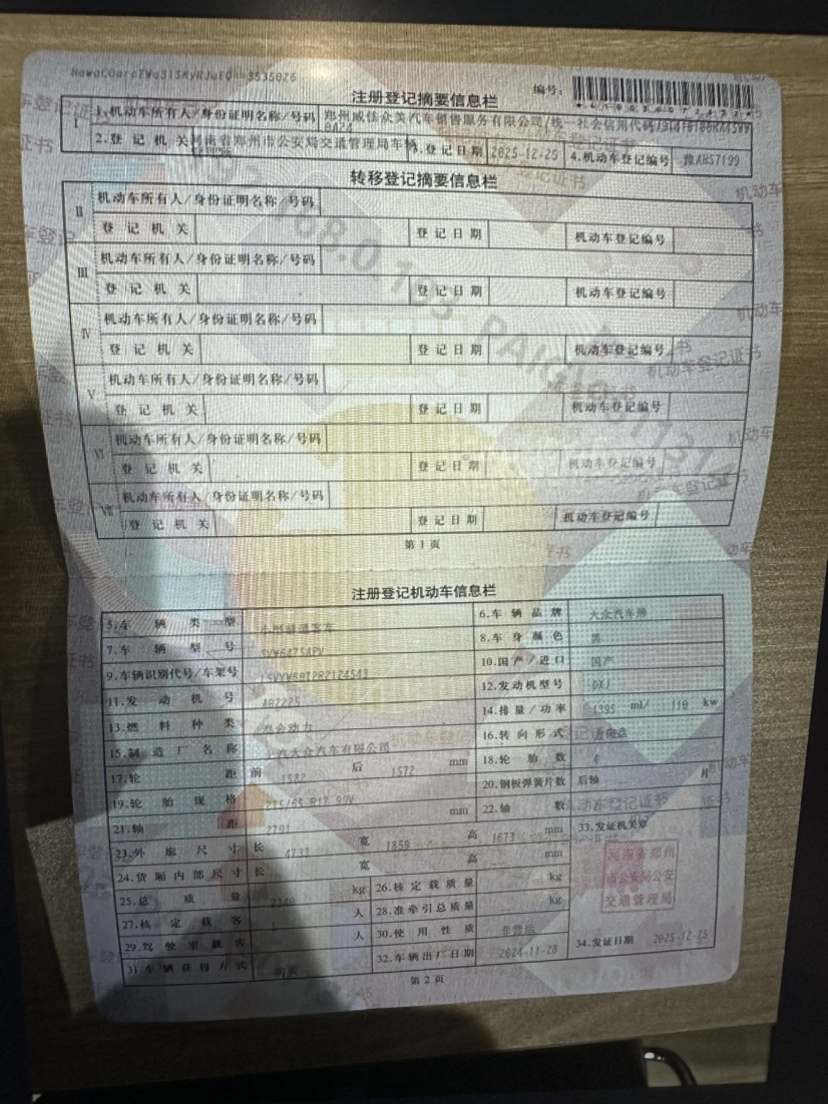 编号:
注册登记摘要信息栏
I
1.机动车所有人/身份证明名称/号码 郑州威佳众美汽车销售服务有限公司/统一社会信用代码
2.登记机关 河南省郑州市公安局交通管理局车辆 3.登记日期 2025-12-25 4.机动车登记编号
转移登记摘要信息栏
II 机动车所有人/身份证明名称/号码
登记机关 登记日期 机动车登记编号
III 机动车所有人/身份证明名称/号码
登记机关 登记日期 机动车登记编号
IV 机动车所有人/身份证明名称/号码
登记机关 登记日期 机动车登记编号
V 机动车所有人/身份证明名称/号码
登记机关 登记日期 机动车登记编号
VI 机动车所有人/身份证明名称/号码
登记机关 登记日期 机动车登记编号
VII 机动车所有人/身份证明名称/号码
登记机关 登记日期 机动车登记编号
第1页
注册登记机动车信息栏
5.车辆类型 小型普通客车 6.车辆品牌 大众汽车牌
7.车辆型号 8.车身颜色 黑
9.车辆识别代号/车架号 10.国产/进口 国产
11.发动机号 12.发动机型号 DXJ
13.燃料种类 14.排量/功率 1395 ml/ 110 kw
15.制造厂名称 上汽大众汽车有限公司 16.转向形式 方向盘
17.轮距 前 1582 后 1572 mm 18.轮胎数 4
19.轮胎规格 215/65 R17 99V 20.钢板弹簧片数 后轴 片
21.轴距 2791 mm 22.轴数
23.外廓尺寸 长 4733 宽 1859 高 1673 mm 33.发证机关章
24.货厢内部尺寸 长 宽 高 mm
25.总质量 kg 26.核定载质量 kg
27.核定载客 人 28.准牵引总质量 kg
29.驾驶室载客 人 30.使用性质 非营运
31.车辆获得方式 购买 32.车辆出厂日期 2024-11-28 34.发证日期 2025-12-25
河南省郑州
市公安局公安
交通管理局
第2页